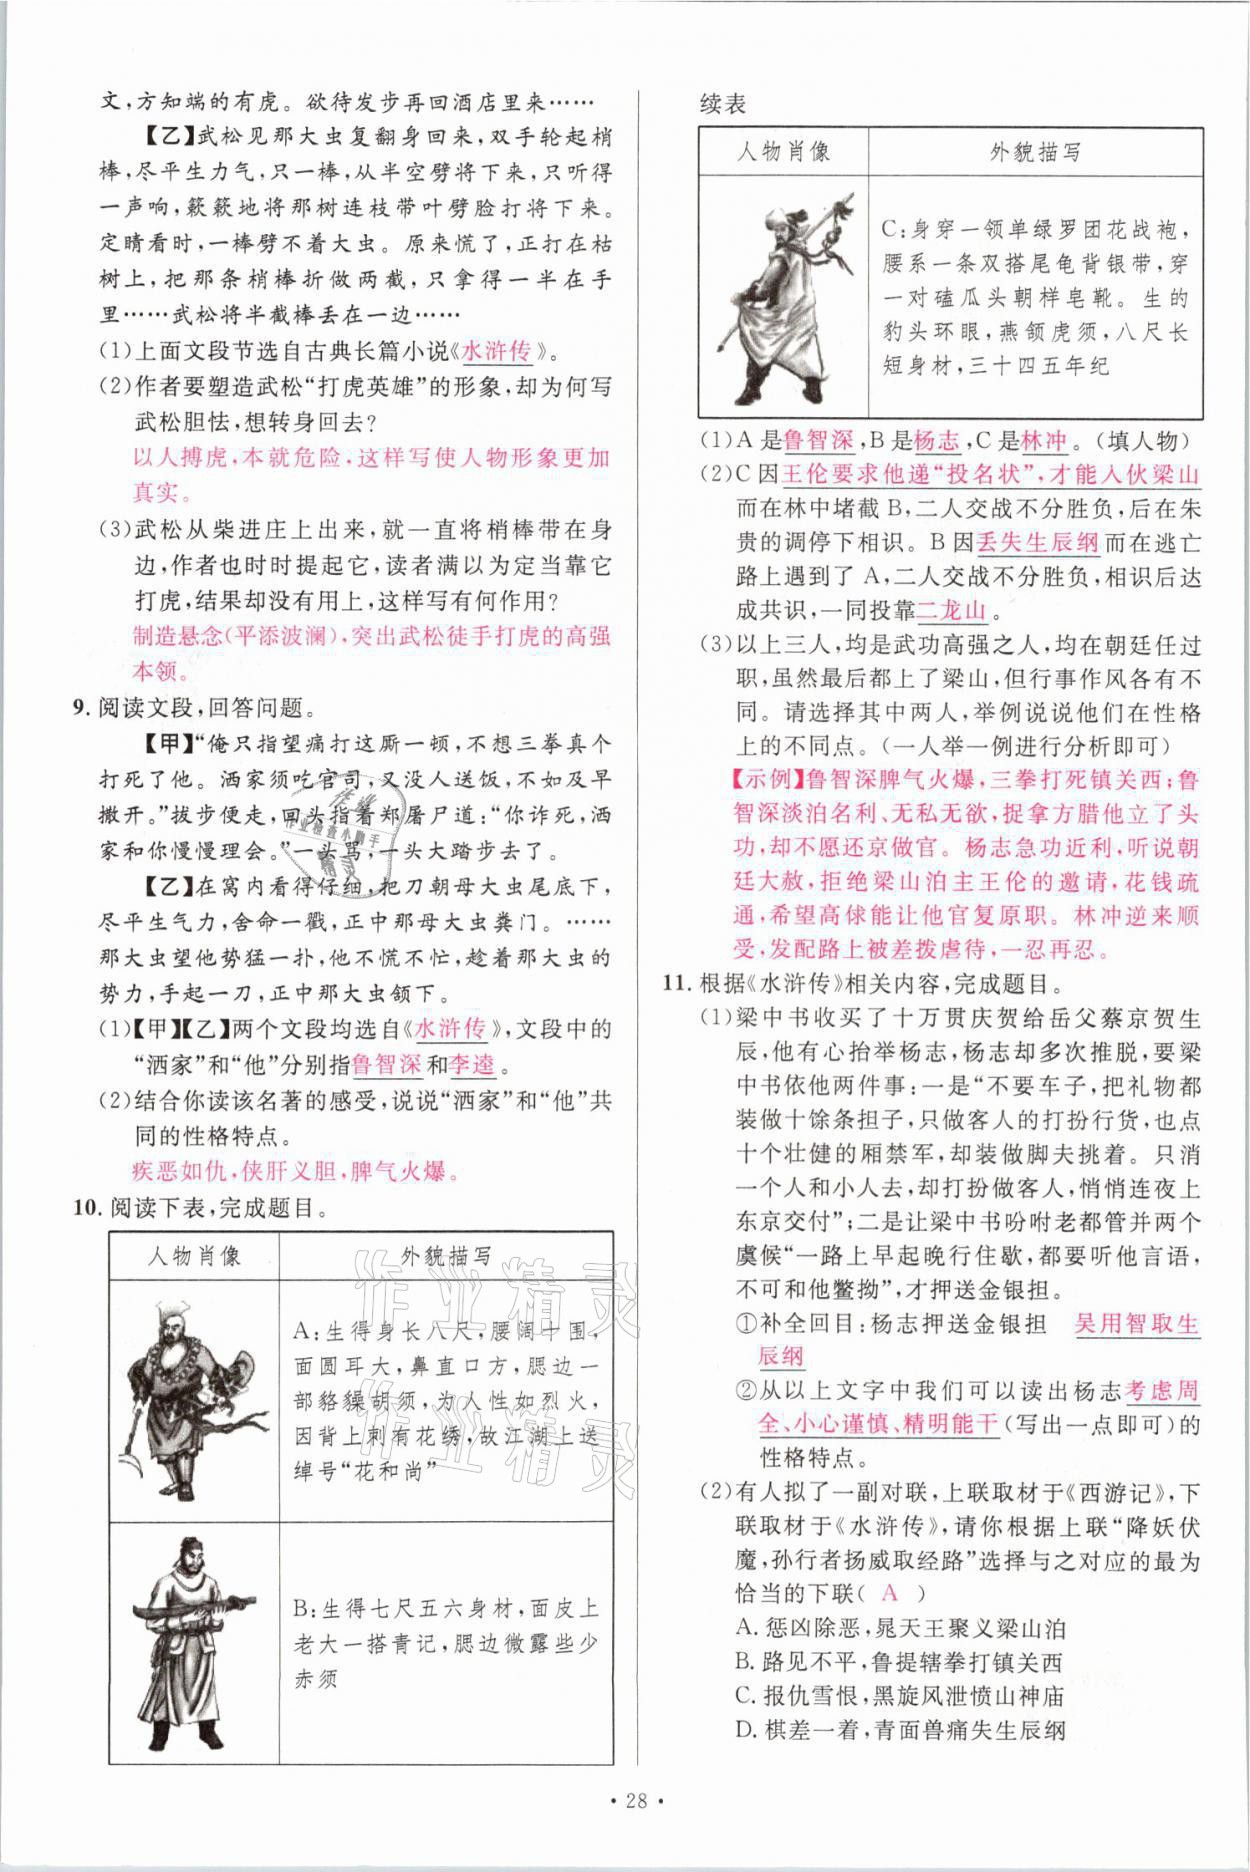 文,方知端的有虎。欲待发步再回酒店里来……
【乙】武松见那大虫复翻身回来,双手轮起梢
棒,尽平生力气,只一棒,从半空劈将下来。只听得
一声响,簌簌地将那树连枝带叶劈脸打将下来。
定睛看时,一棒劈不着大虫。原来慌了,正打在枯
树上,把那条梢棒折做两截,只拿得一半在手
里……武松将半截棒丢在一边……
(1)上面文段节选自古典长篇小说《水浒传》。
(2)作者要塑造武松“打虎英雄”的形象,却为何写
武松胆怯,想转身回去?
以人搏虎,本就危险,这样写使人物形象更加
真实。
(3)武松从柴进庄上出来,就一直将梢棒带在身
边,作者也时时提起它,读者满以为定当靠它
打虎,结果却没有用上,这样写有何作用?
制造悬念(平添波澜),突出武松徒手打虎的高强
本领。
9. 阅读文段,回答问题。
【甲】“俺只指望痛打这厮一顿,不想三拳真个
打死了他。洒家须吃官司,又没人送饭,不如及早
撒开。”拔步便走,回头指着郑屠尸道:“你诈死,洒
家和你慢慢理会。”一头骂,一头大踏步去了。
【乙】在窝内看得仔细,把刀朝母大虫尾底下,
尽平生气力,舍命一戳,正中那母大虫粪门。……
那大虫望他势猛一扑,他不慌不忙,趁着那大虫的
势力,手起一刀,正中那大虫颌下。
(1)【甲】【乙】两个文段均选自《水浒传》,文段中的
“洒家”和“他”分别指鲁智深和李逵。
(2)结合你读该名著的感受,说说“洒家”和“他”共
同的性格特点。
疾恶如仇,侠肝义胆,脾气火爆。
10. 阅读下表,完成题目。
人物肖像 外貌描写
A:生得身长八尺,腰阔十围,
面圆耳大,鼻直口方,腮边一
部貉𧴲胡须,为人性如烈火,
因背上刺有花绣,故江湖上送
绰号“花和尚”
B:生得七尺五六身材,面皮上
老大一搭青记,腮边微露些少
赤须
续表
人物肖像 外貌描写
C:身穿一领单绿罗团花战袍,
腰系一条双搭尾龟背银带,穿
一对磕瓜头朝样皂靴。生的
豹头环眼,燕颔虎须,八尺长
短身材,三十四五年纪
(1)A是鲁智深,B是杨志,C是林冲。(填人物)
(2)C因王伦要求他递“投名状”,才能入伙梁山
而在林中堵截B,二人交战不分胜负,后在朱
贵的调停下相识。B因丢失生辰纲而在逃亡
路上遇到了A,二人交战不分胜负,相识后达
成共识,一同投靠二龙山。
(3)以上三人,均是武功高强之人,均在朝廷任过
职,虽然最后都上了梁山,但行事作风各有不
同。请选择其中两人,举例说说他们在性格
上的不同点。(一人举一例进行分析即可)
【示例】鲁智深脾气火爆,三拳打死镇关西;鲁
智深淡泊名利、无私无欲,捉拿方腊他立了头
功,却不愿还京做官。杨志急功近利,听说朝
廷大赦,拒绝梁山泊主王伦的邀请,花钱疏
通,希望高俅能让他官复原职。林冲逆来顺
受,发配路上被差拨虐待,一忍再忍。
11. 根据《水浒传》相关内容,完成题目。
(1)梁中书收买了十万贯庆贺给岳父蔡京贺生
辰,他有心抬举杨志,杨志却多次推脱,要梁
中书依他两件事:一是“不要车子,把礼物都
装做十馀条担子,只做客人的打扮行货,也点
十个壮健的厢禁军,却装做脚夫挑着。只消
一个人和小人去,却打扮做客人,悄悄连夜上
东京交付”;二是让梁中书吩咐老都管并两个
虞候“一路上早起晚行住歇,都要听他言语,
不可和他鳖拗”,才押送金银担。
①补全回目:杨志押送金银担 吴用智取生
辰纲
②从以上文字中我们可以读出杨志考虑周
全、小心谨慎、精明能干(写出一点即可)的
性格特点。
(2)有人拟了一副对联,上联取材于《西游记》,下
联取材于《水浒传》,请你根据上联“降妖伏
魔,孙行者扬威取经路”选择与之对应的最为
恰当的下联( A )
A. 惩凶除恶,晁天王聚义梁山泊
B. 路见不平,鲁提辖拳打镇关西
C. 报仇雪恨,黑旋风泄愤山神庙
D. 棋差一着,青面兽痛失生辰纲
作业
作业检查小助手
精灵
作业精灵
作业精灵
· 28 ·